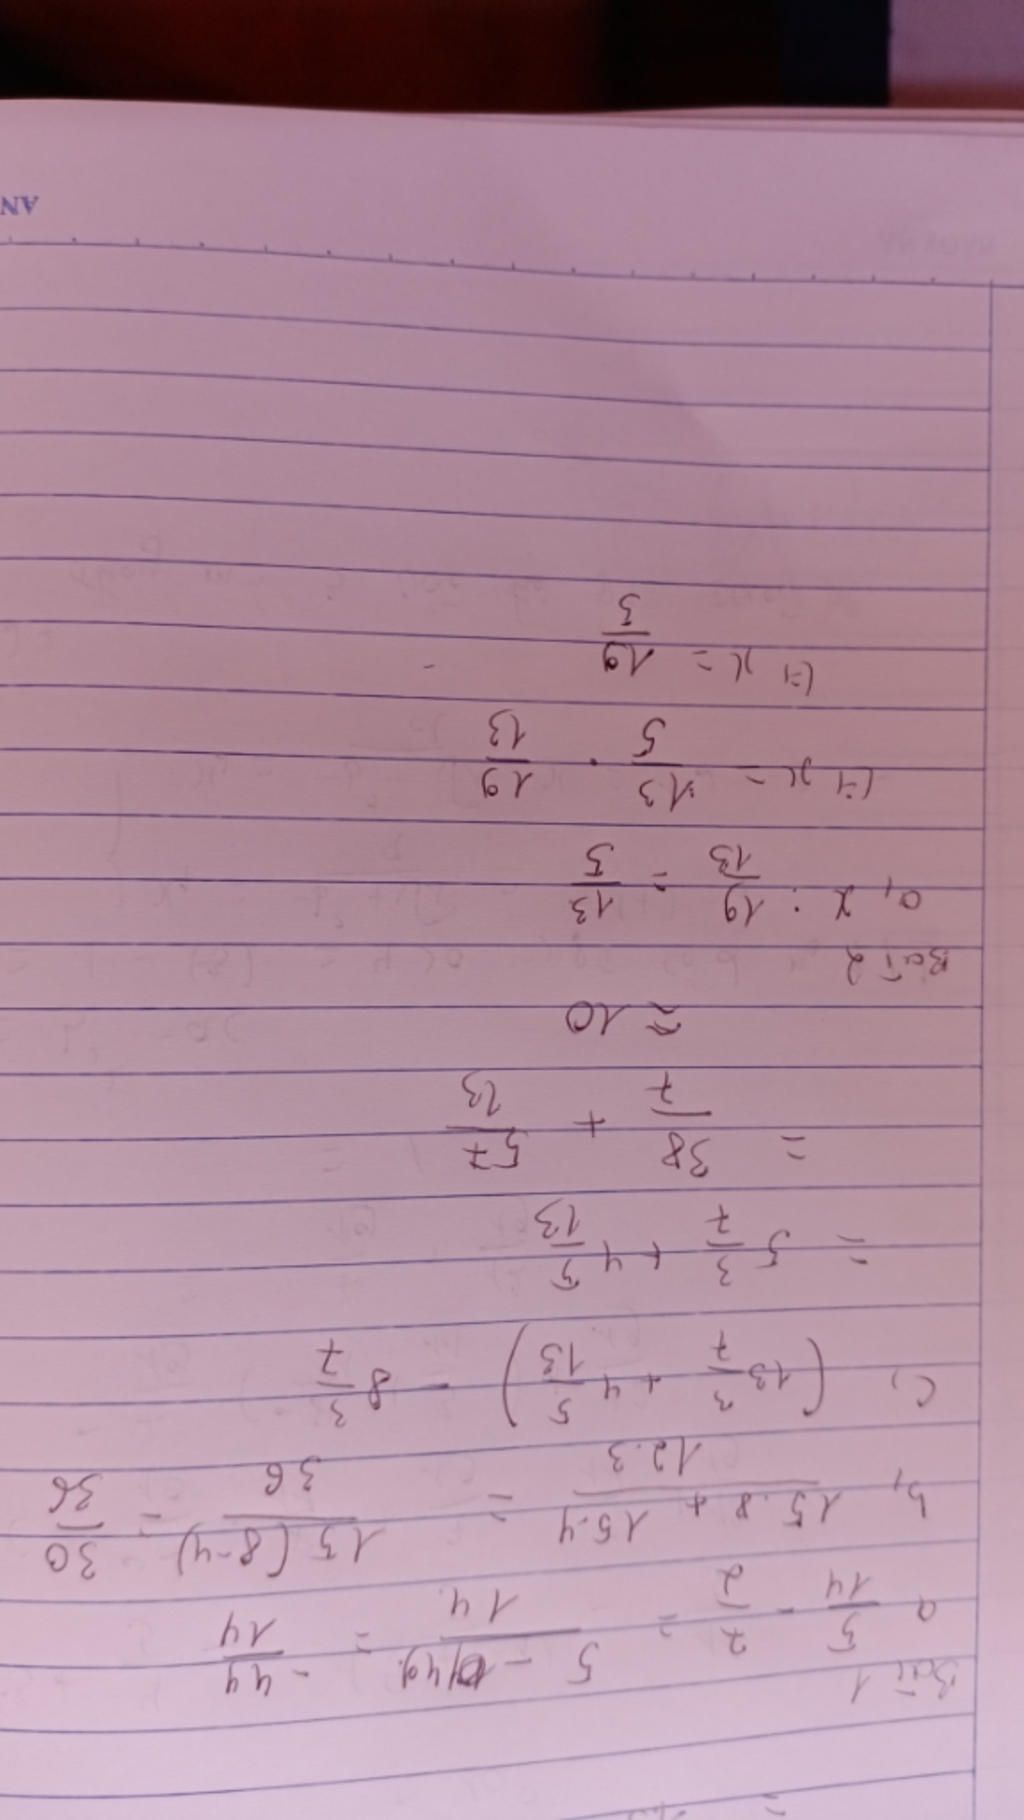 Bài 1
a 5/14 - 7/2 = 5 - 49/14 = -44/14
b, 15.8 + 15.4/12.3 = 15(8-4)/36 = 30/36
c, (13 3/7 + 4 5/13) - 8 3/7
= 5 3/7 + 4 5/13
= 38/7 + 57/13
= 10
Bài 2
a, x : 19/13 = 13/5
(=) x = 13/5 . 19/13
(=) x = 19/3
AN